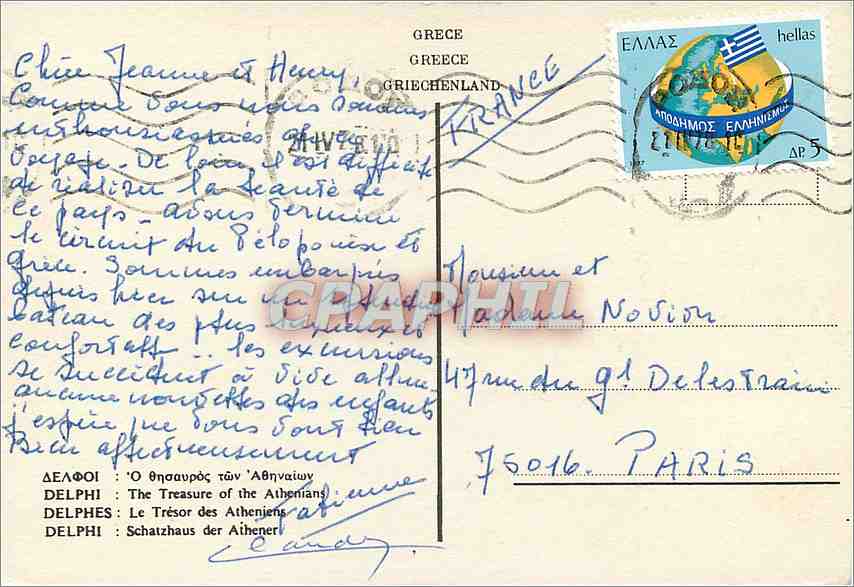 GRECE
GREECE
GRIECHENLAND
FRANCE
ΕΛΛΑΣ hellas
ΑΠΟΔΗΜΟΣ ΕΛΛΗΝΙΣΜΟΣ
1977
ΔΡ. 5
Chère Jeanne et Henry,
Comme vous nous sommes
enthousiasmés de ce
voyage. De loin il est difficile
de réaliser la beauté de
ce pays - avons terminé
le circuit du Péloponèse et
grèce. Sommes embarqués
depuis hier sur un
bateau des plus luxueux et
confortable .. les excursions
se succèdent à vive allure
aucune nouvelles des enfants
j'espère que tous vont bien
Bien affectueusement
Fabienne
Monsieur et
Madame Novion
47 rue du Gl Delestrain
75016. PARIS
CPAPHIL
ΔΕΛΦΟΙ : Ὁ θησαυρὸς τῶν Ἀθηναίων
DELPHI : The Treasure of the Athenians
DELPHES : Le Trésor des Atheniens
DELPHI : Schatzhaus der Athener